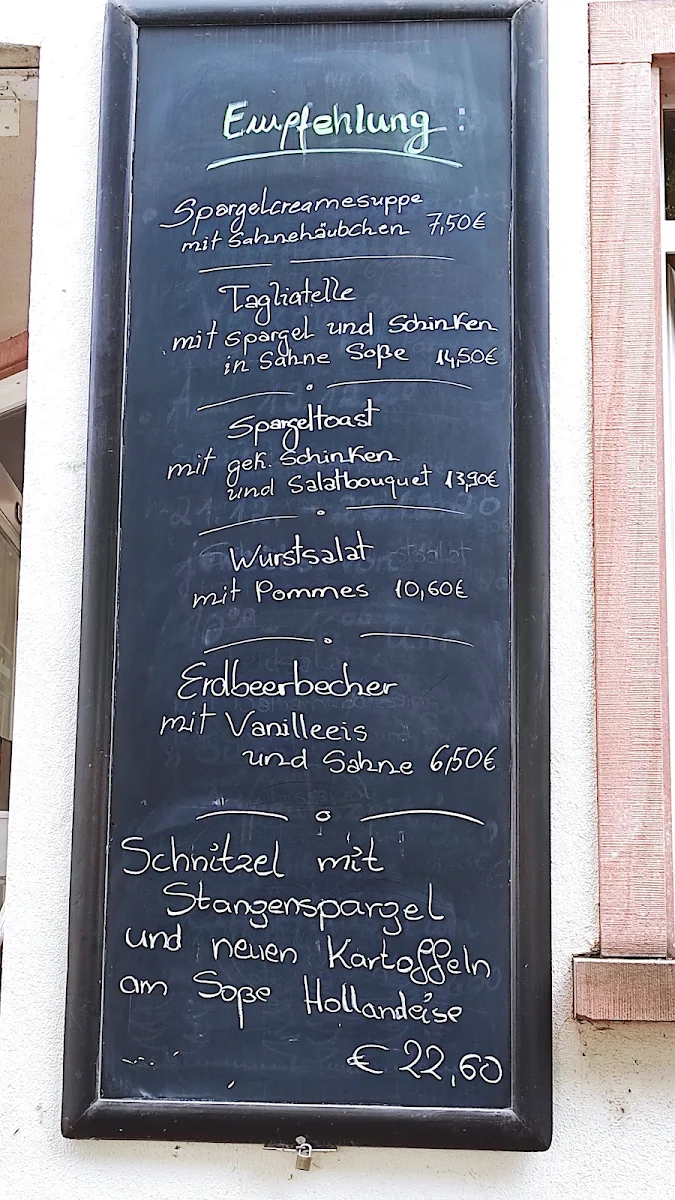 Empfehlung:
Spargelcreamesuppe
mit Sahnehäubchen 7,50€
Tagliatelle
mit Spargel und Schinken
in Sahne Soße 14,50€
Spargeltoast
mit gek. Schinken
und Salatbouquet 13,90€
Wurstsalat
mit Pommes 10,60€
Erdbeerbecher
mit Vanilleeis
und Sahne 6,50€
Schnitzel mit
Stangenspargel
und neuen Kartoffeln
am Soße Hollandeise
€ 22,60